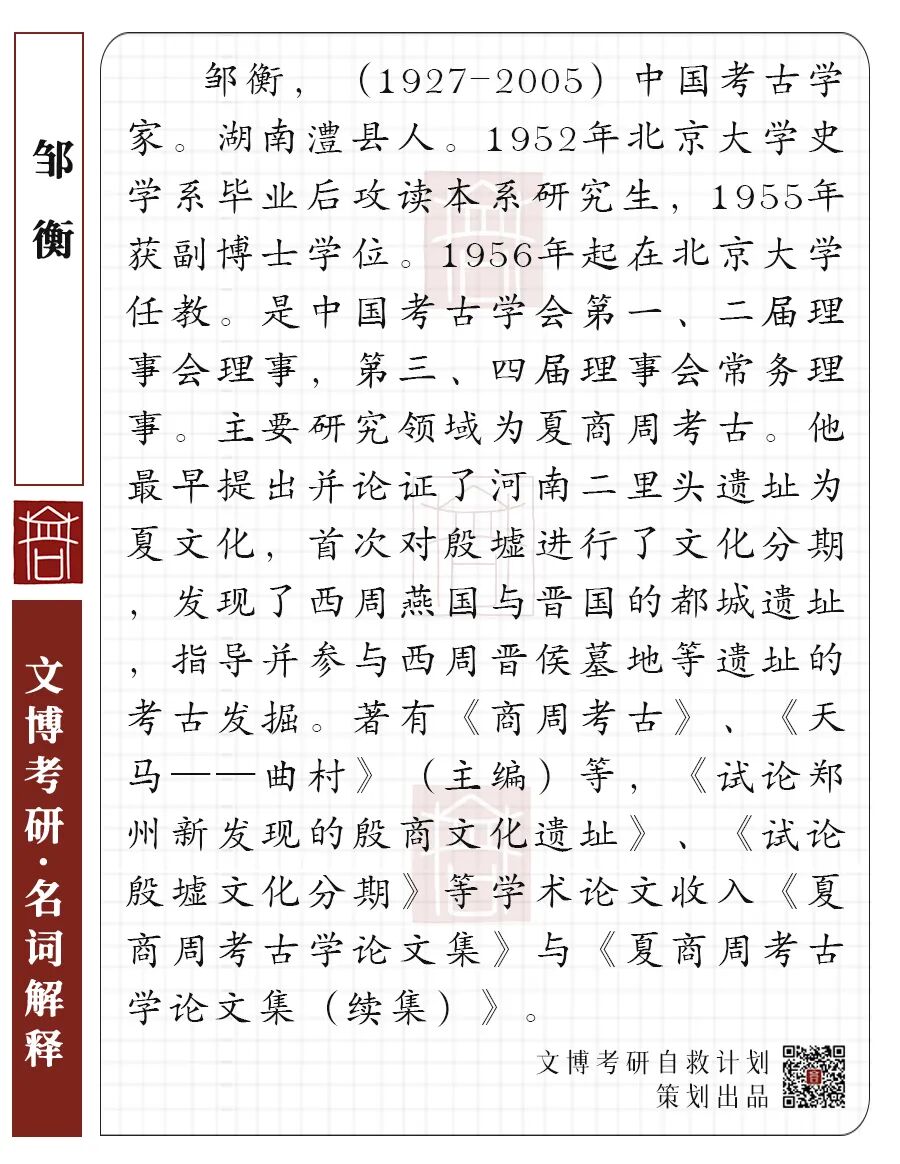 邹衡
文博考研·名词解释
邹衡，（1927-2005）中国考古学
家。湖南澧县人。1952年北京大学史
学系毕业后攻读本系研究生，1955年
获副博士学位。1956年起在北京大学
任教。是中国考古学会第一、二届理
事会理事，第三、四届理事会常务理
事。主要研究领域为夏商周考古。他
最早提出并论证了河南二里头遗址为
夏文化，首次对殷墟进行了文化分期
，发现了西周燕国与晋国的都城遗址
，指导并参与西周晋侯墓地等遗址的
考古发掘。著有《商周考古》、《天
马——曲村》（主编）等，《试论郑
州新发现的殷商文化遗址》、《试论
殷墟文化分期》等学术论文收入《夏
商周考古学论文集》与《夏商周考古
学论文集（续集）》。
文博考研自救计划
策划出品